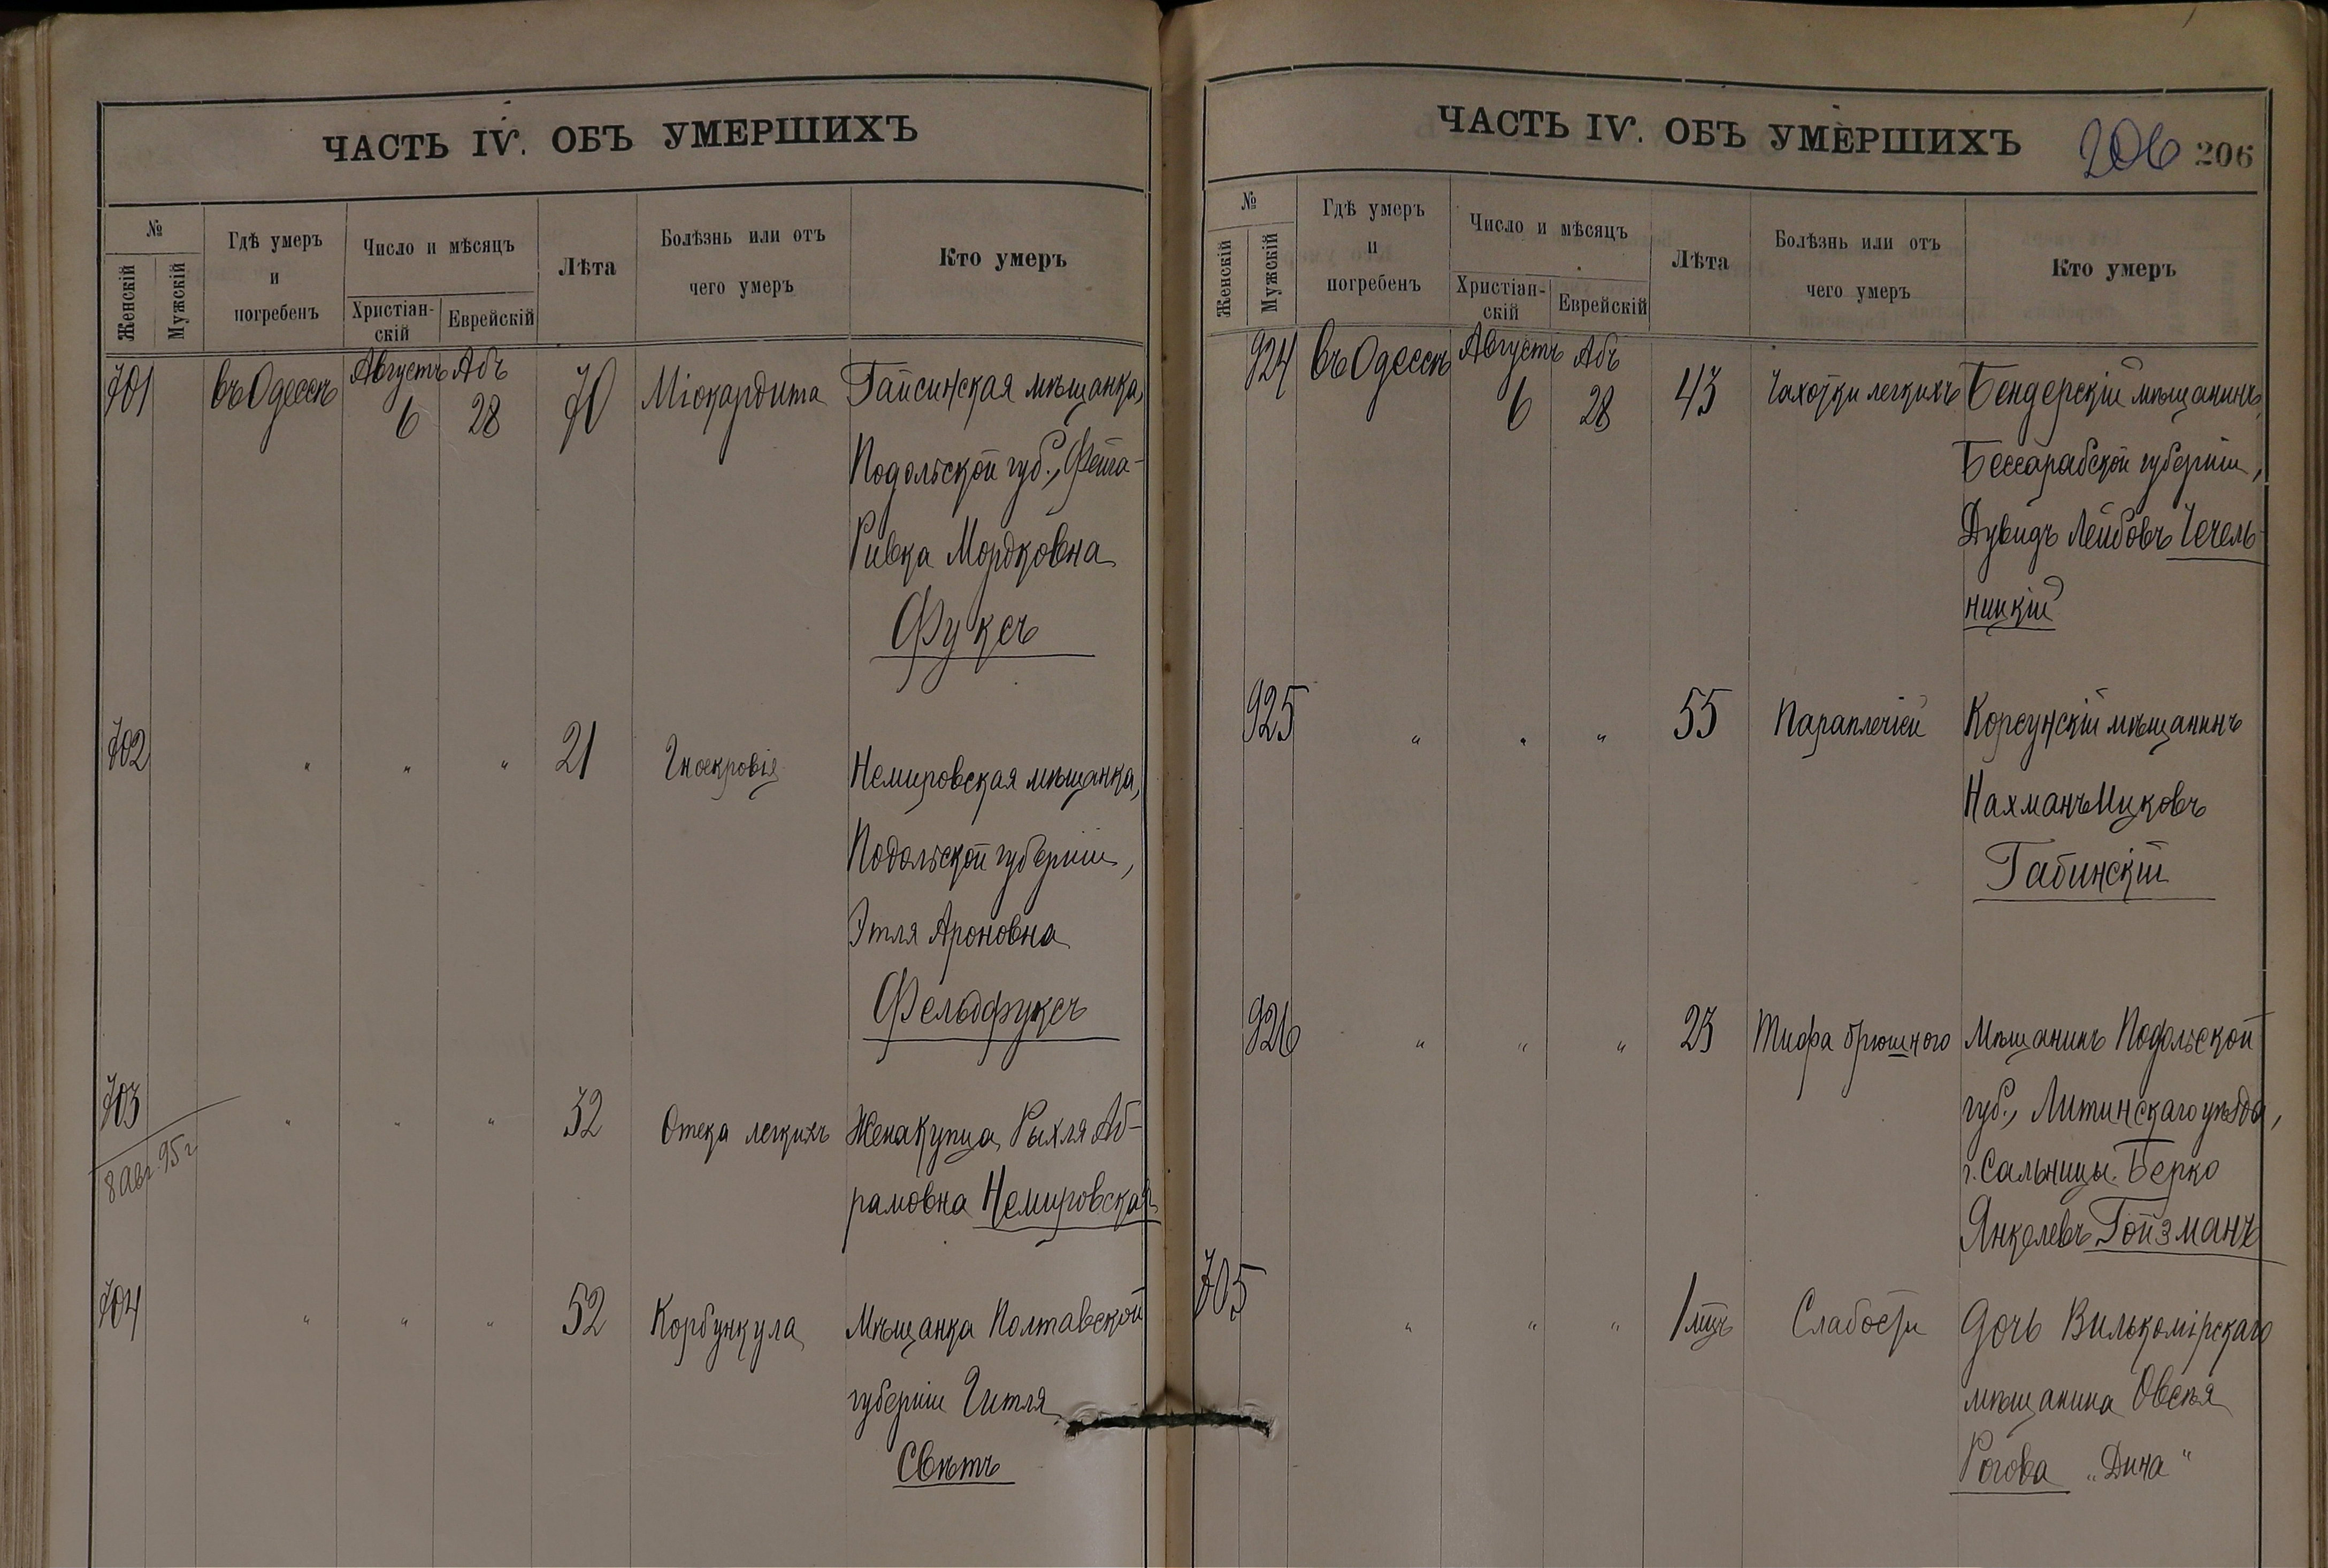 ЧАСТЬ IV. ОБЪ УМЕРШИХЪ
№
Женскій
Мужскій
Гдѣ умеръ
и
погребенъ
Число и мѣсяцъ
Христіан-
скій
Еврейскій
Лѣта
Болѣзнь или отъ
чего умеръ
Кто умеръ
701 въ Одессѣ Августъ 6 Абъ 28 70 Міокардита Гайсинская мѣщанка,
Подольской губ., Фейга-
Ривка Мордковна
Фуксъ
702 " " " 21 Гноекровія Немировская мѣщанка,
Подольской губерніи,
Этля Ароновна
Фельдфуксъ
703 " " " 32 Отека легкихъ Жена купца Рыхля Аб-
8 авг. 95 г.
рамовна Немировская
704 " " " 52 Корбункула Мѣщанка Полтавской
губерніи Гитля
Свѣтъ
ЧАСТЬ IV. ОБЪ УМЕРШИХЪ 206 206
№
Женскій
Мужскій
Гдѣ умеръ
и
погребенъ
Число и мѣсяцъ
Христіан-
скій
Еврейскій
Лѣта
Болѣзнь или отъ
чего умеръ
Кто умеръ
924 въ Одессѣ Августъ 6 Абъ 28 43 Чахотки легкихъ Бендерскій мѣщанинъ,
Бессарабской губерніи,
Дувидъ Лейбовъ Чечель-
ницкій
925 " " " 55 Параплегіи Корсунскій мѣщанинъ
Нахманъ Ицковъ
Габинскій
926 " " " 23 Тифа брюшного Мѣщанинъ Подольской
губ., Литинскаго уѣзда,
г. Сальницы. Берко
Янкелевъ Гойзманъ
705 " " " 1 мцъ Слабости Дочь Вилькомірскаго
мѣщанина Овсѣя
Рогова „Дина“